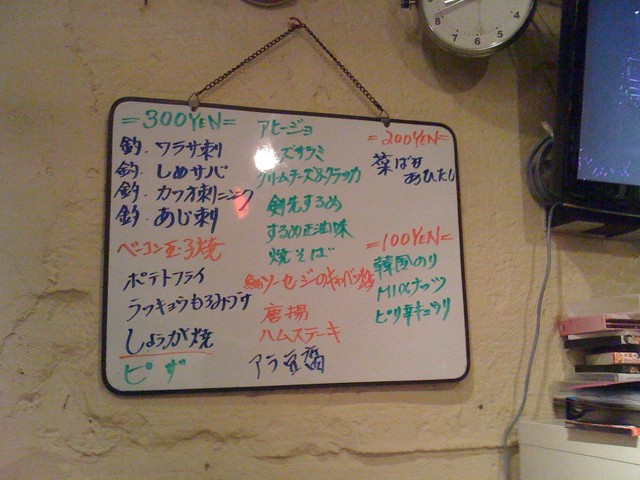 =300YEN=
釣.ワラサ刺
釣.しめサバ
釣.カツオ刺ニンニク
釣.あじ刺
ベーコン玉子焼
ポテトフライ
ラッキョウもろみづけ
しょうが焼
ピザ
アヒージョ
ズサラミ
クリームチーズ&クラッカー
剣先するめ
するめ正油味
焼そば
ソーセージのキャベツ
唐揚
ハムステーキ
豆腐
=200YEN=
菜ばな
おひたし
=100YEN=
韓国のり
MIXナッツ
ピリ辛キュウリ
8
7
6
5
4